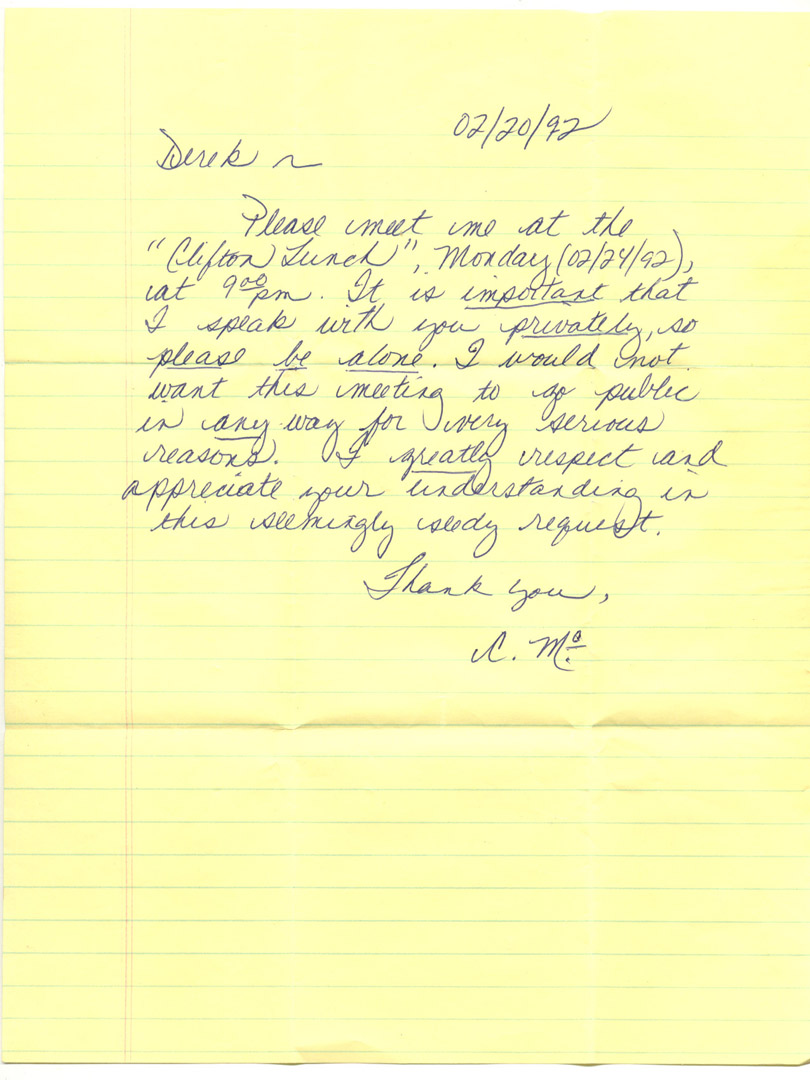 02/20/92
Derek ~
Please meet me at the
"Clifton Lunch", Monday (02/24/92),
at 9:00 pm. It is important that
I speak with you privately, so
please be alone. I would not
want this meeting to go public
in any way for very serious
reasons. I greatly respect and
appreciate your understanding in
this seemingly seedy request.
Thank you,
C. Mc